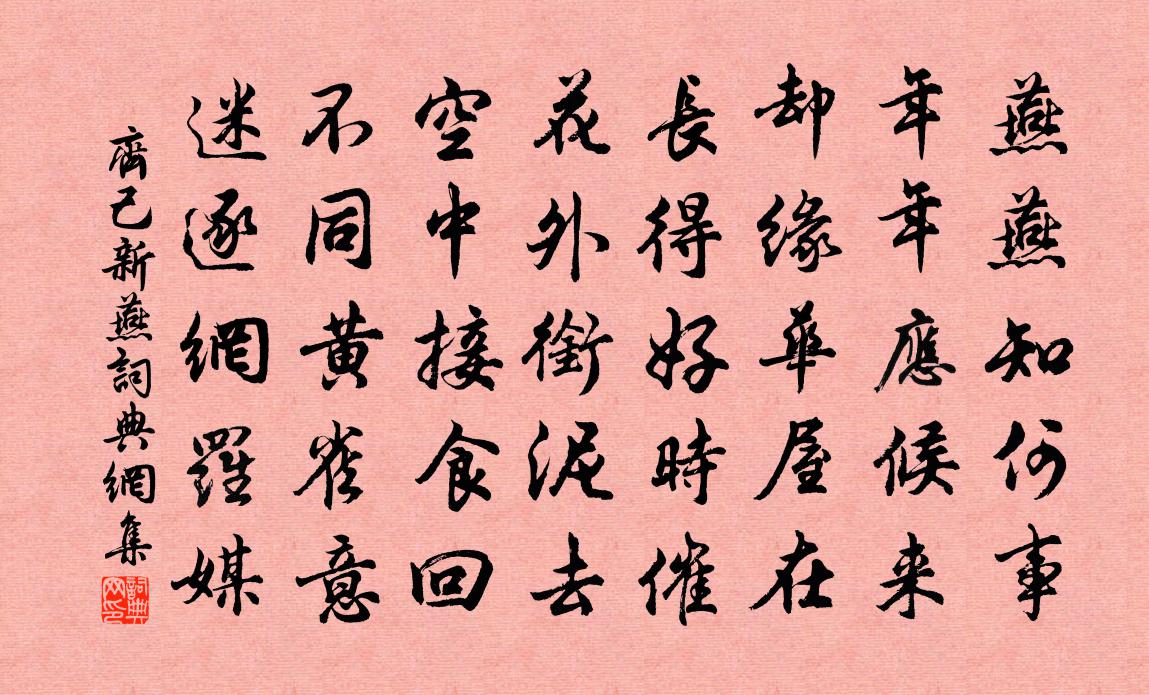 燕燕知何事
年年應候来
却緣華屋在
長得好時催
花外銜泥去
空中接食回
不同黄雀意
迷逐網羅媒
齊己新燕詞典網集
詞典网印